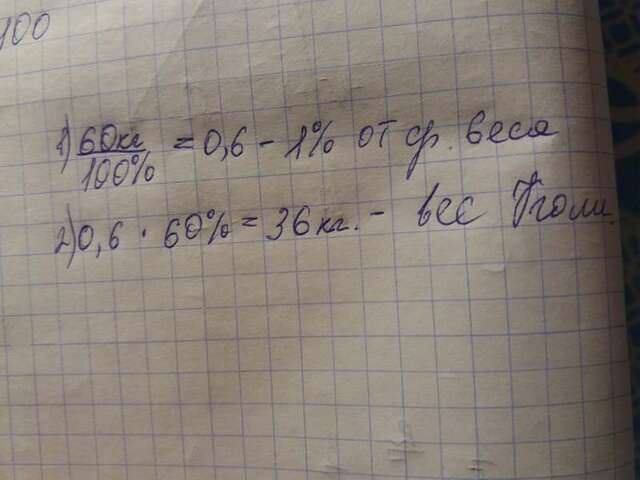 100
1) 60кг / 100% = 0,6 - 1% от ф. веса
2) 0,6 · 60% = 36 кг. - вес